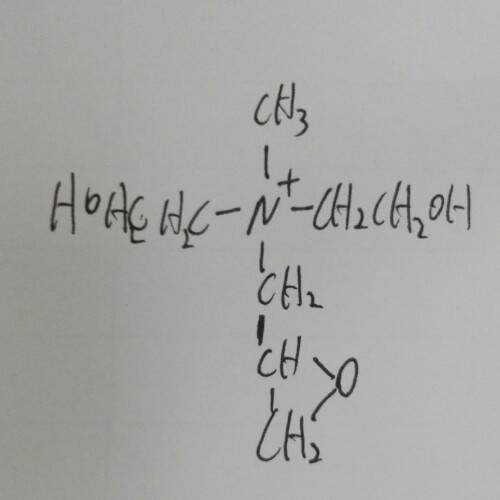 CH3
HOHCH2C-N+-CH2CH2OH
CH2
CH
O
CH2